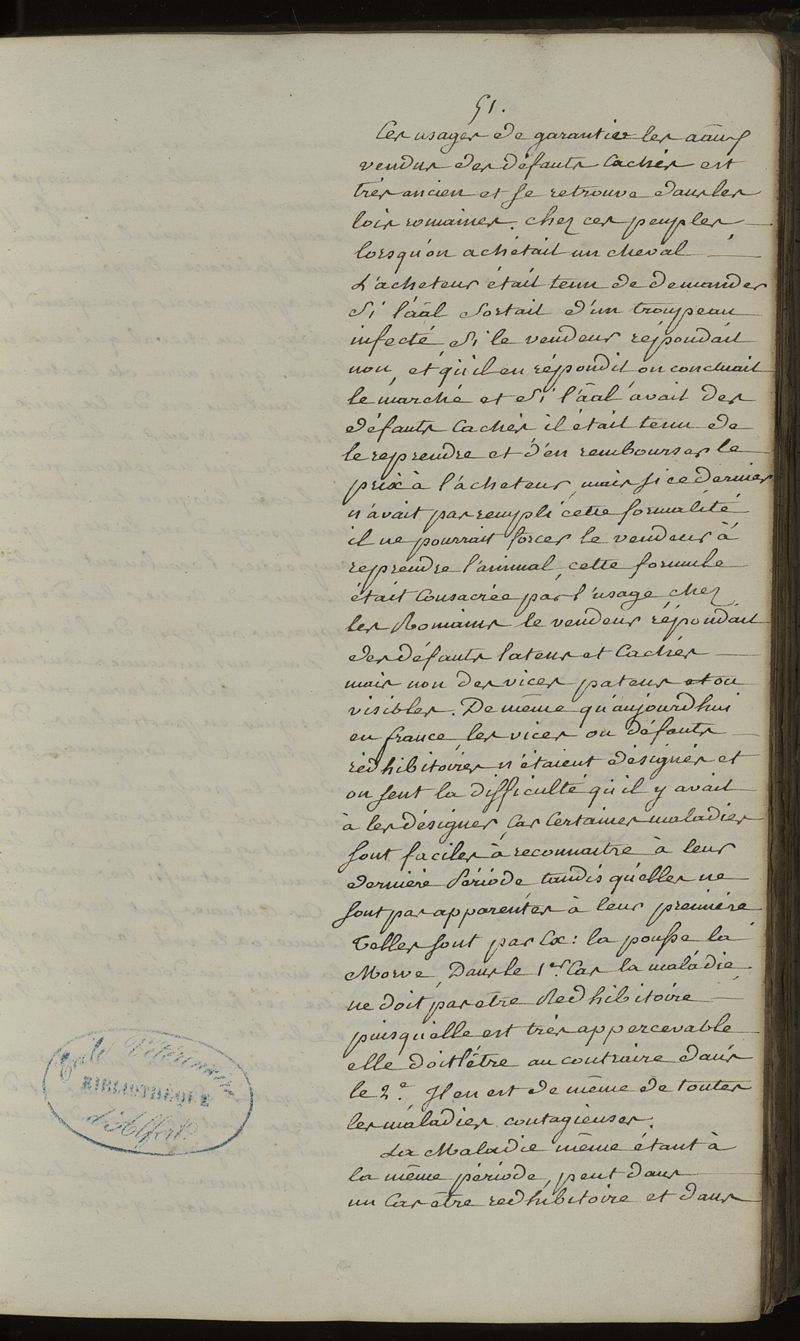 51.
Ces usages de garantie les aāux
vendus des défauts Cachés est
très ancien et se retrouve dans les
lois romaines. chez ces peuples
lorsqu'on achétait un cheval
L'acheteur était tenu de demander
Si l'aāl Sortait d'un troupeau
infecté Si le vendeur répondait
non, et qu'il en répondit on concluait
le marché et Si l'aāl avait des
défauts Cachés il était tenu de
le reprendre et d'en rembourser le
prix à l'acheteur, mais si ce dernier
n'avait pas rempli cette formalité
il ne pourrait forcer le vendeur à
reprendre l'animal, cette formule
était Consacrée par l'usage chez
les Romains le vendeur répondait
des défauts latens et Cachés
mais non des vices patens et ou
visibles. De même qu'aujourdhui
en france, les vices ou défauts
rédhibitoires n'étaient désignés et
on sent la difficulté qu'il y avait
à les désigner, Car Certaines maladies
sont faciles à reconnaitre à leur
dernière Période tandis qu'elles ne
sont pas apparentes à leur première
Telles sont par Ex: la pousse la
Morve, Dans le 1er Cas la maladie
ne doit pas être Redhibitoire
puisqu'elle est très appercevable
elle doit l'être au contraire dans
le 2e. Il en est de même de toutes
les maladies contagieuses.
La Maladie même étant à
la même période, peut dans
un Cas être redhibitoire et dans
Ecole Vétérinaire
BIBLIOTHÈQUE
d'Alfort